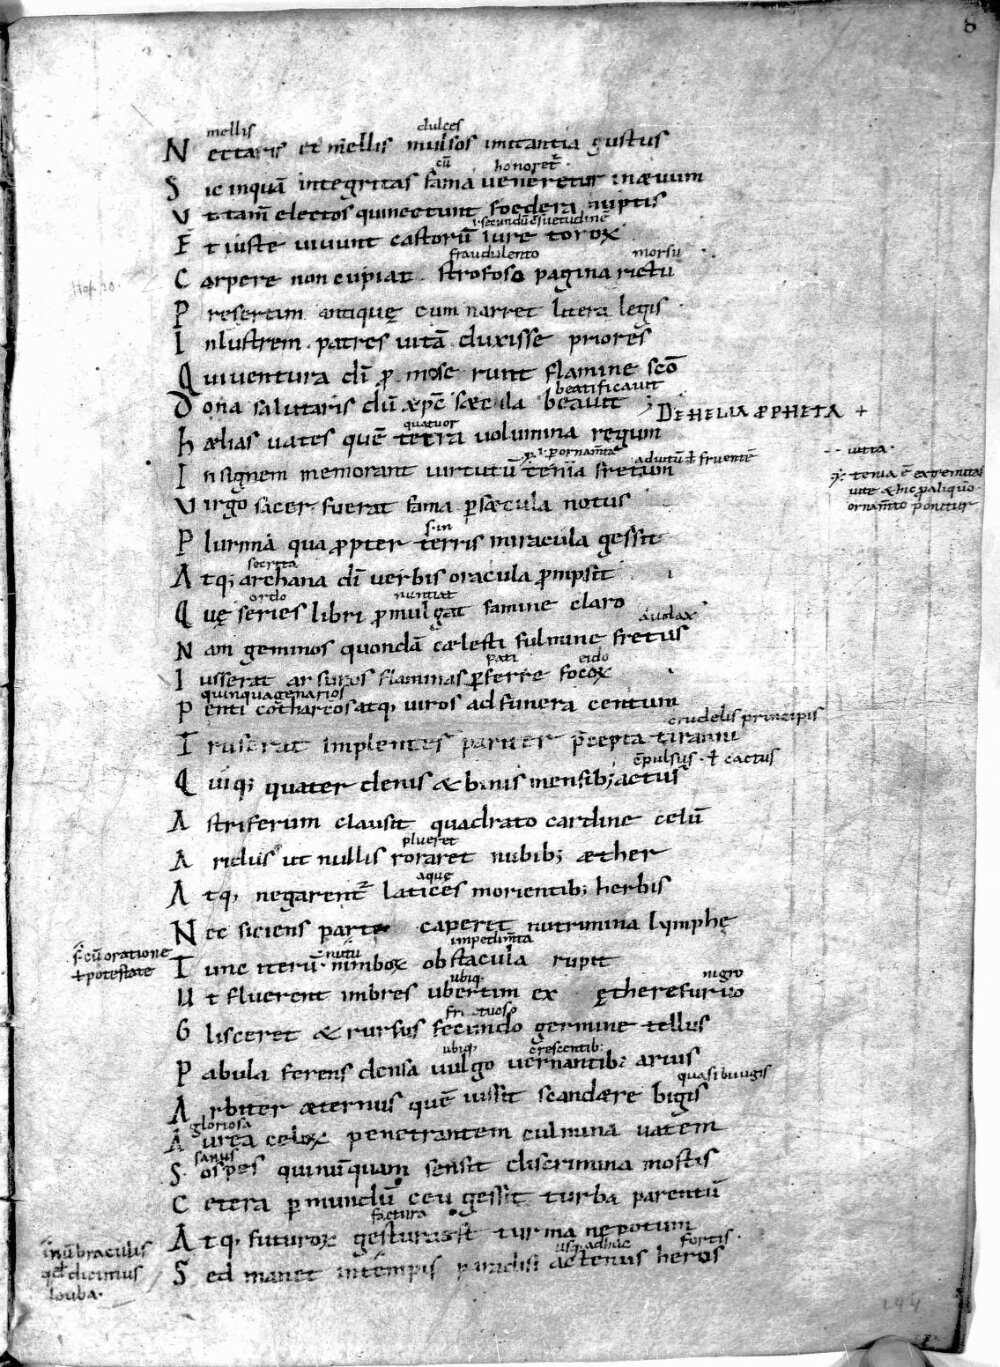 8
mellis dulces
N ectaris et mellis mulsos imitantia gustus
cū honoret̄
S ic inquā integritas fama veneretur inævum
V t tam̄ electos quinectunt foedera nuptis
.i. secundū
E t iuste vivunt castorū iure toroꝝ
fraudulento morsu
C arpere non cupiat strofoso pagina rictu
P resertim antiquę cum narret litera legis
I nlustrem patres vitā duxisse priores
Q uiventura dī ꝓmpserunt flamine scō
beatificavit
D ona salutaris dū xp̄c sæcula beavit ;
DE HELIA PPHETA +
quatuor
h ælias vates quē tetra volumina regum
.i. ꝓ ornam̄ta adiutū ł fruentē
I nsignem memorant virtutū tenia fretum
vitta
tenia ē extremitas
vitte & hic ꝓ aliquo
ornam̄to ponitur
V irgo sacer fuerat fama ꝑ sæcula notus
s. in
P lurima qua ꝓpter terris miracula gessit
secreta
A tq; archana dī verbis oracula ꝓmpsit
ordo nuntiat
Q uę series libri ꝓmulgat famine claro
N am geminos quondā cælesti fulmine fretus
pati cido
I usserat arsuros flammas ꝑferre focoꝝ
quinquagenarios
P enticotharcos atq; viros ad funera centum
crudelis principis
T ruserat implentes pariter p̄cepta tiranni
ēpulsus . ł cactus
Q uiq; quater denis & binis mensib; actus
A striferum clausit quadrato cardine celū
plueret
A ridus ut nullis roraret nubib; æther
aque
A tq; negarent̄ latices morientib; herbis
N ec siciens parte caperet nutrimina lymphę
s. cū oratione
ł potestate
nutu impedim̄ta
T unc iterū nimboꝝ obstacula rupit
ubiq; nigro
U t fluerent imbres ubertim ex ętherefurvo
fructuoso
G lisceret & rursus fecundo germine tellus
ubiq; crescentib;
P abula ferens densa vulgo vernantib; arvis
quasi biiugis
A rbiter æternus quē iussit scandære bigis
gloriosa
A urea celoꝝ penetrantem culmina vatem
sanus
S ospes quinūquam sensit discrimina mortis
C etera ꝑ mundū ceu gessit turba parentū
factura
A tq; futuroꝝ gestura est turma nepotum
usq; adhuc fortis
S ed manet intempis paradisi actenus heros
in ūbraculis
qd dicimus
louba.